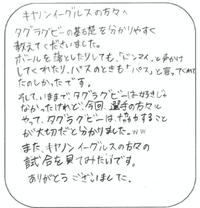 キヤノンイーグルスの方々へ
タグラグビーの基礎を分かりやすく
教えてくださいました。
ボールを落としたりしても、「ドンマイ」と声かけ
してくれたり、パスのときも「パス」と言ってくれて
たのしかったです。
そして、いままでタグラグビーは好きじゃ
なかったけれど、今回、選手の方々に
やって、タグラグビーは、協力すること
が大切だと分かりました。ww
また、キヤノンイーグルスの方々の
試合を見てみたいです。
ありがとうございました。